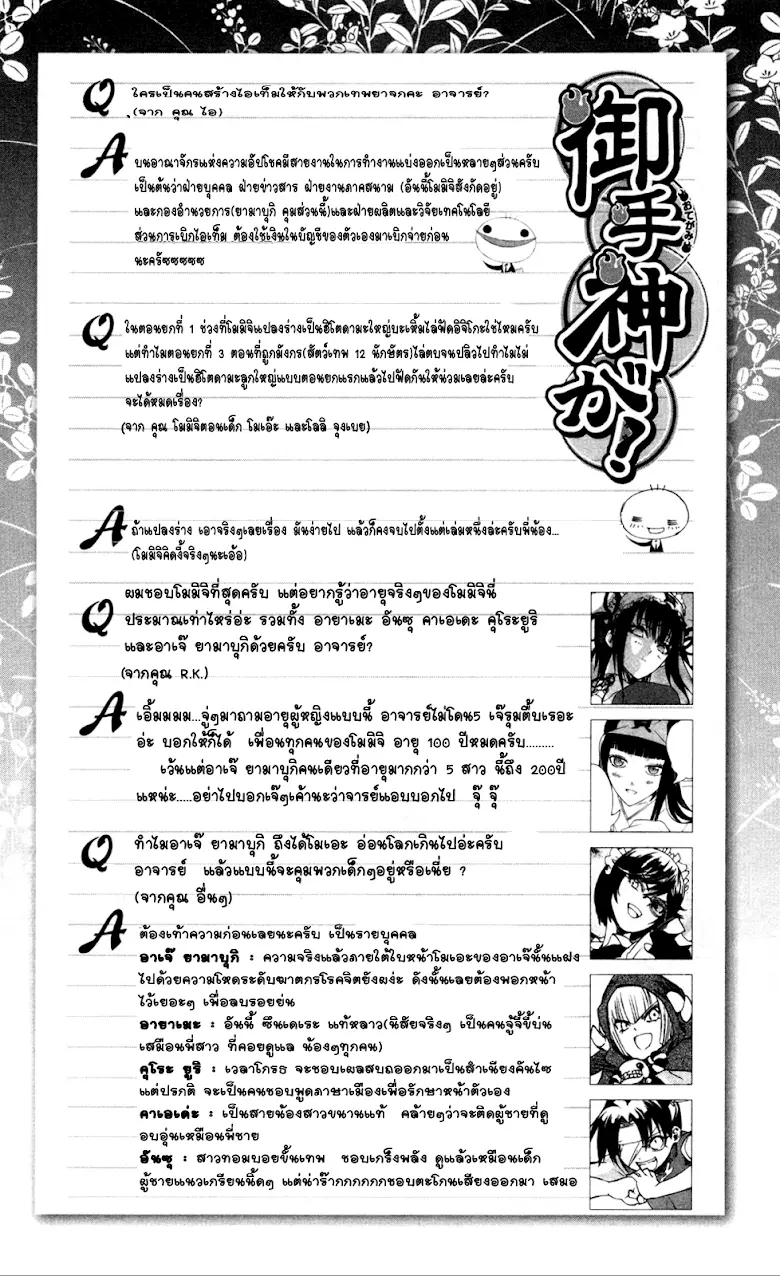 Q ใครเป็นคนสร้างไอเท็มให้กับพวกเทพยาจกคะ อาจารย์?
(จาก คุณ ไอ)
A บนอาณาจักรแห่งความอัปโชคมีสายงานในการทำงานแบ่งออกเป็นหลายๆส่วนครับ
เป็นต้นว่าฝ่ายบุคคล ฝ่ายข่าวสาร ฝ่ายงานภาคสนาม (อันนี้โมมิจิสังกัดอยู่)
และกองอำนวยการ(ยามาบุกิ คุมส่วนนี้)และฝ่ายผลิตและวิจัยเทคโนโลยี
ส่วนการเบิกไอเท็ม ต้องใช้เงินในบัญชีของตัวเองมาเบิกจ่ายก่อน
นะครัซซซซซ
御手神が!
おてがみ
Q ในตอนยกที่ 1 ช่วงที่โมมิจิแปลงร่างเป็นฮิโตดามะใหญ่บะเหิ้มไล่ฟัดอิจิโกะใช่ไหมครับ
แต่ทำไมตอนยกที่ 3 ตอนที่ถูกมังกร(สัตว์เทพ 12 นักษัตร)ไล่ตบจนปลิวไปทำไมไม่
แปลงร่างเป็นฮิโตดามะลูกใหญ่แบบตอนยกแรกแล้วไปฟัดกันให้น่วมเลยล่ะครับ
จะได้หมดเรื่อง?
(จาก คุณ โมมิจิตอนเด็ก โมเอ๊ะ และโลลิ จุงเบย)
A ถ้าแปลงร่าง เอาจริงๆเลยเรื่อง มันง่ายไป แล้วก็คงจบไปตั้งแต่เล่มหนึ่งล่ะครับพี่น้อง...
(โมมิจิคิดงี้จริงๆนะเอ้อ)
Q ผมชอบโมมิจิที่สุดครับ แต่อยากรู้ว่าอายุจริงๆของโมมิจินี่
ประมาณเท่าไหร่อ่ะ รวมทั้ง อายาเมะ อันซุ คาเอเดะ คุโระยูริ
และอาเจ๊ ยามาบุกิด้วยครับ อาจารย์?
(จากคุณ R.K.)
A เอิ้มมมม...จู่ๆมาถามอายุผู้หญิงแบบนี้ อาจารย์ไม่โดน5 เจ๊รุมตื้บเรอะ
อ่ะ บอกให้ก็ได้ เพื่อนทุกคนของโมมิจิ อายุ 100 ปีหมดครับ.........
เว้นแต่อาเจ๊ ยามาบุกิคนเดียวที่อายุมากกว่า 5 สาว นี้ถึง 200ปี
แหน่ะ.....อย่าไปบอกเจ๊ๆเค้านะว่าจารย์แอบบอกไป จุ๊ จุ๊
Q ทำไมอาเจ๊ ยามาบุกิ ถึงได้โมเอะ อ่อนโลกเกินไปอ่ะครับ
อาจารย์ แล้วแบบนี้จะคุมพวกเด็กๆอยู่หรือเนี่ย ?
(จากคุณ อื่นๆ)
A ต้องเท้าความก่อนเลยนะครับ เป็นรายบุคคล
อาเจ๊ ยามาบุกิ : ความจริงแล้วภายใต้ใบหน้าโมเอะของอาเจ๊นั้นแฝง
ไปด้วยความโหดระดับฆาตกรโรคจิตยังผงะ ดังนั้นเลยต้องพอกหน้า
ไว้เยอะๆ เพื่อลบรอยย่น
อายาเมะ : อันนี้ ซึนเดเระ แท้หลาว(นิสัยจริงๆ เป็นคนจู้จี้ขี้บ่น
เสมือนพี่สาว ที่คอยดูแล น้องๆทุกคน)
คุโระ ยูริ : เวลาโกรธ จะชอบเผลสบถออกมาเป็นสำเนียงคันไซ
แต่ปรกติ จะเป็นคนชอบพูดภาษาเมืองเพื่อรักษาหน้าตัวเอง
คาเอเด่ะ : เป็นสายน้องสาวขนานแท้ คล้ายๆว่าจะติดผู้ชายที่ดู
อบอุ่นเหมือนพี่ชาย
อันซุ : สาวทอมบอยขั้นเทพ ชอบเกร็งพลัง ดูแล้วเหมือนเด็ก
ผู้ชายแนวเกรียนนิ้ดๆ แต่น่าร๊ากกกกกกชอบตะโกนเสียงออกมา เสมอ